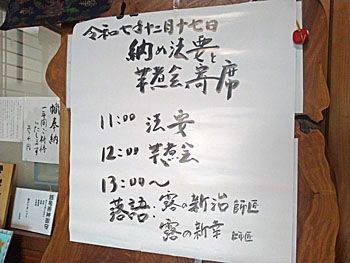 令和七年十二月十七日
納め法要と
芋煮会寄席
11:00 法要
12:00 芋煮会
13:00〜
落語:露の新治 師匠
露の新幸 師匠